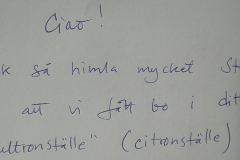 Ciao!
k så himla mycket St
att vi fått bo i dit
ultronställe" (citronställe)